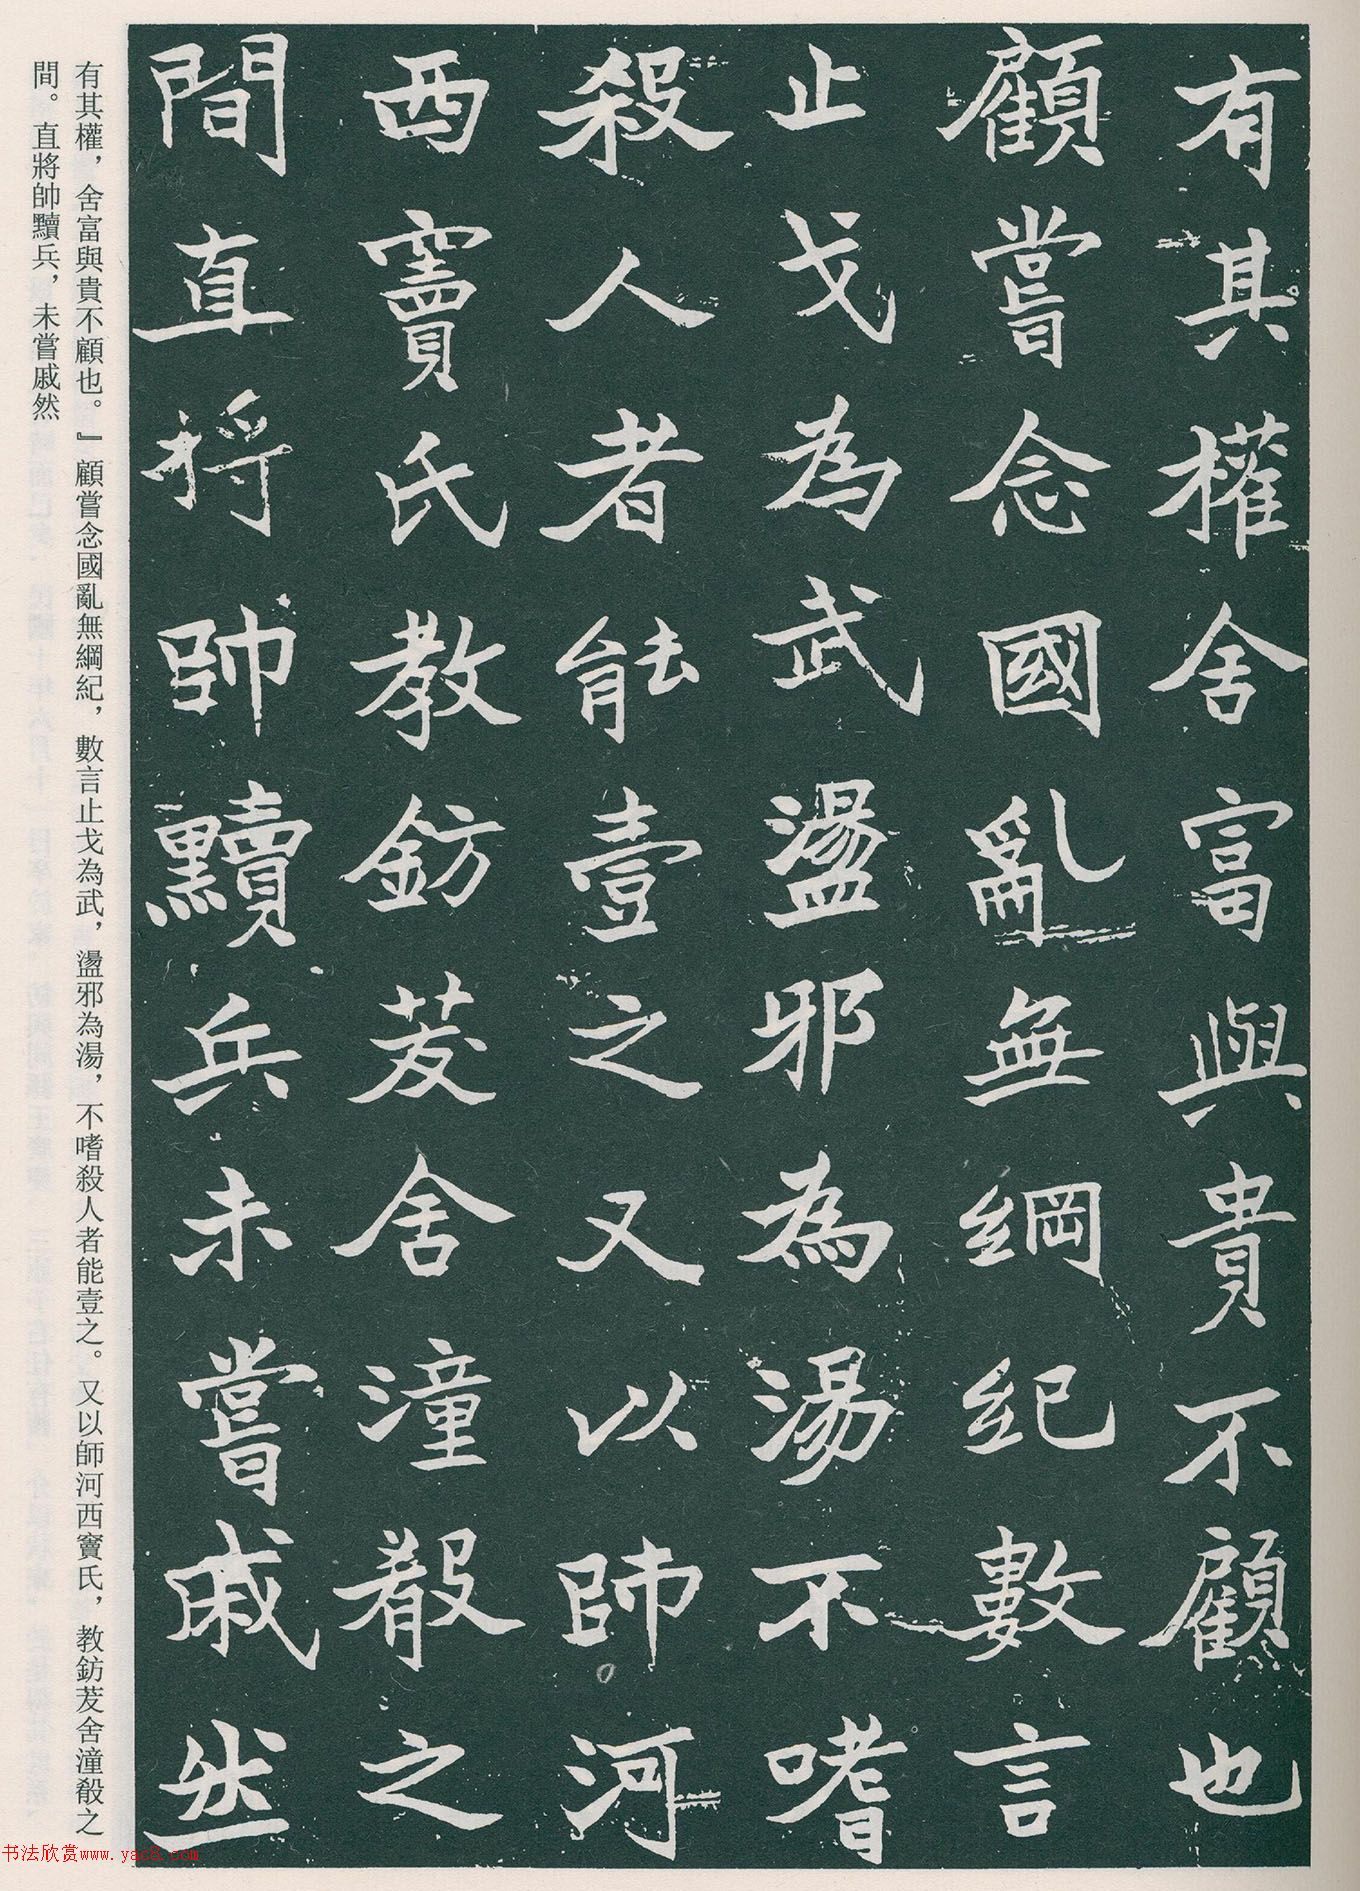 有其權舍富與貴不顧也
顧嘗念國亂無綱紀數言
止戈為武盪邪為湯不嗜
殺人者能壹之又以師河
西竇氏教鈁茇舍潼殽之
間直將帥黷兵未嘗戚然
有其權，舍富與貴不顧也。』顧嘗念國亂無綱紀，數言止戈為武，盪邪為湯，不嗜殺人者能壹之。又以師河西竇氏，教鈁茇舍潼殽之
間。直將帥黷兵，未嘗戚然
书法欣赏www.yac8.com